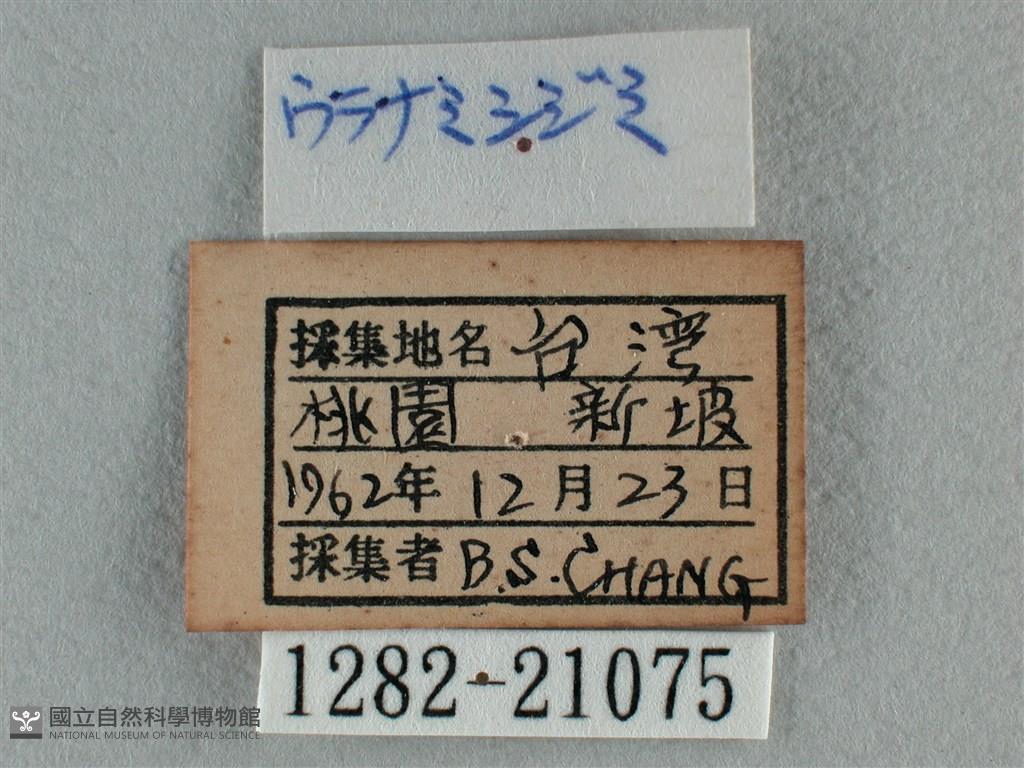 ウラナミシジミ
採集地名 台湾
桃園 新坡
1962年 12月 23日
採集者 B.S.CHANG
1282-21075
國立自然科學博物館
NATIONAL MUSEUM OF NATURAL SCIENCE